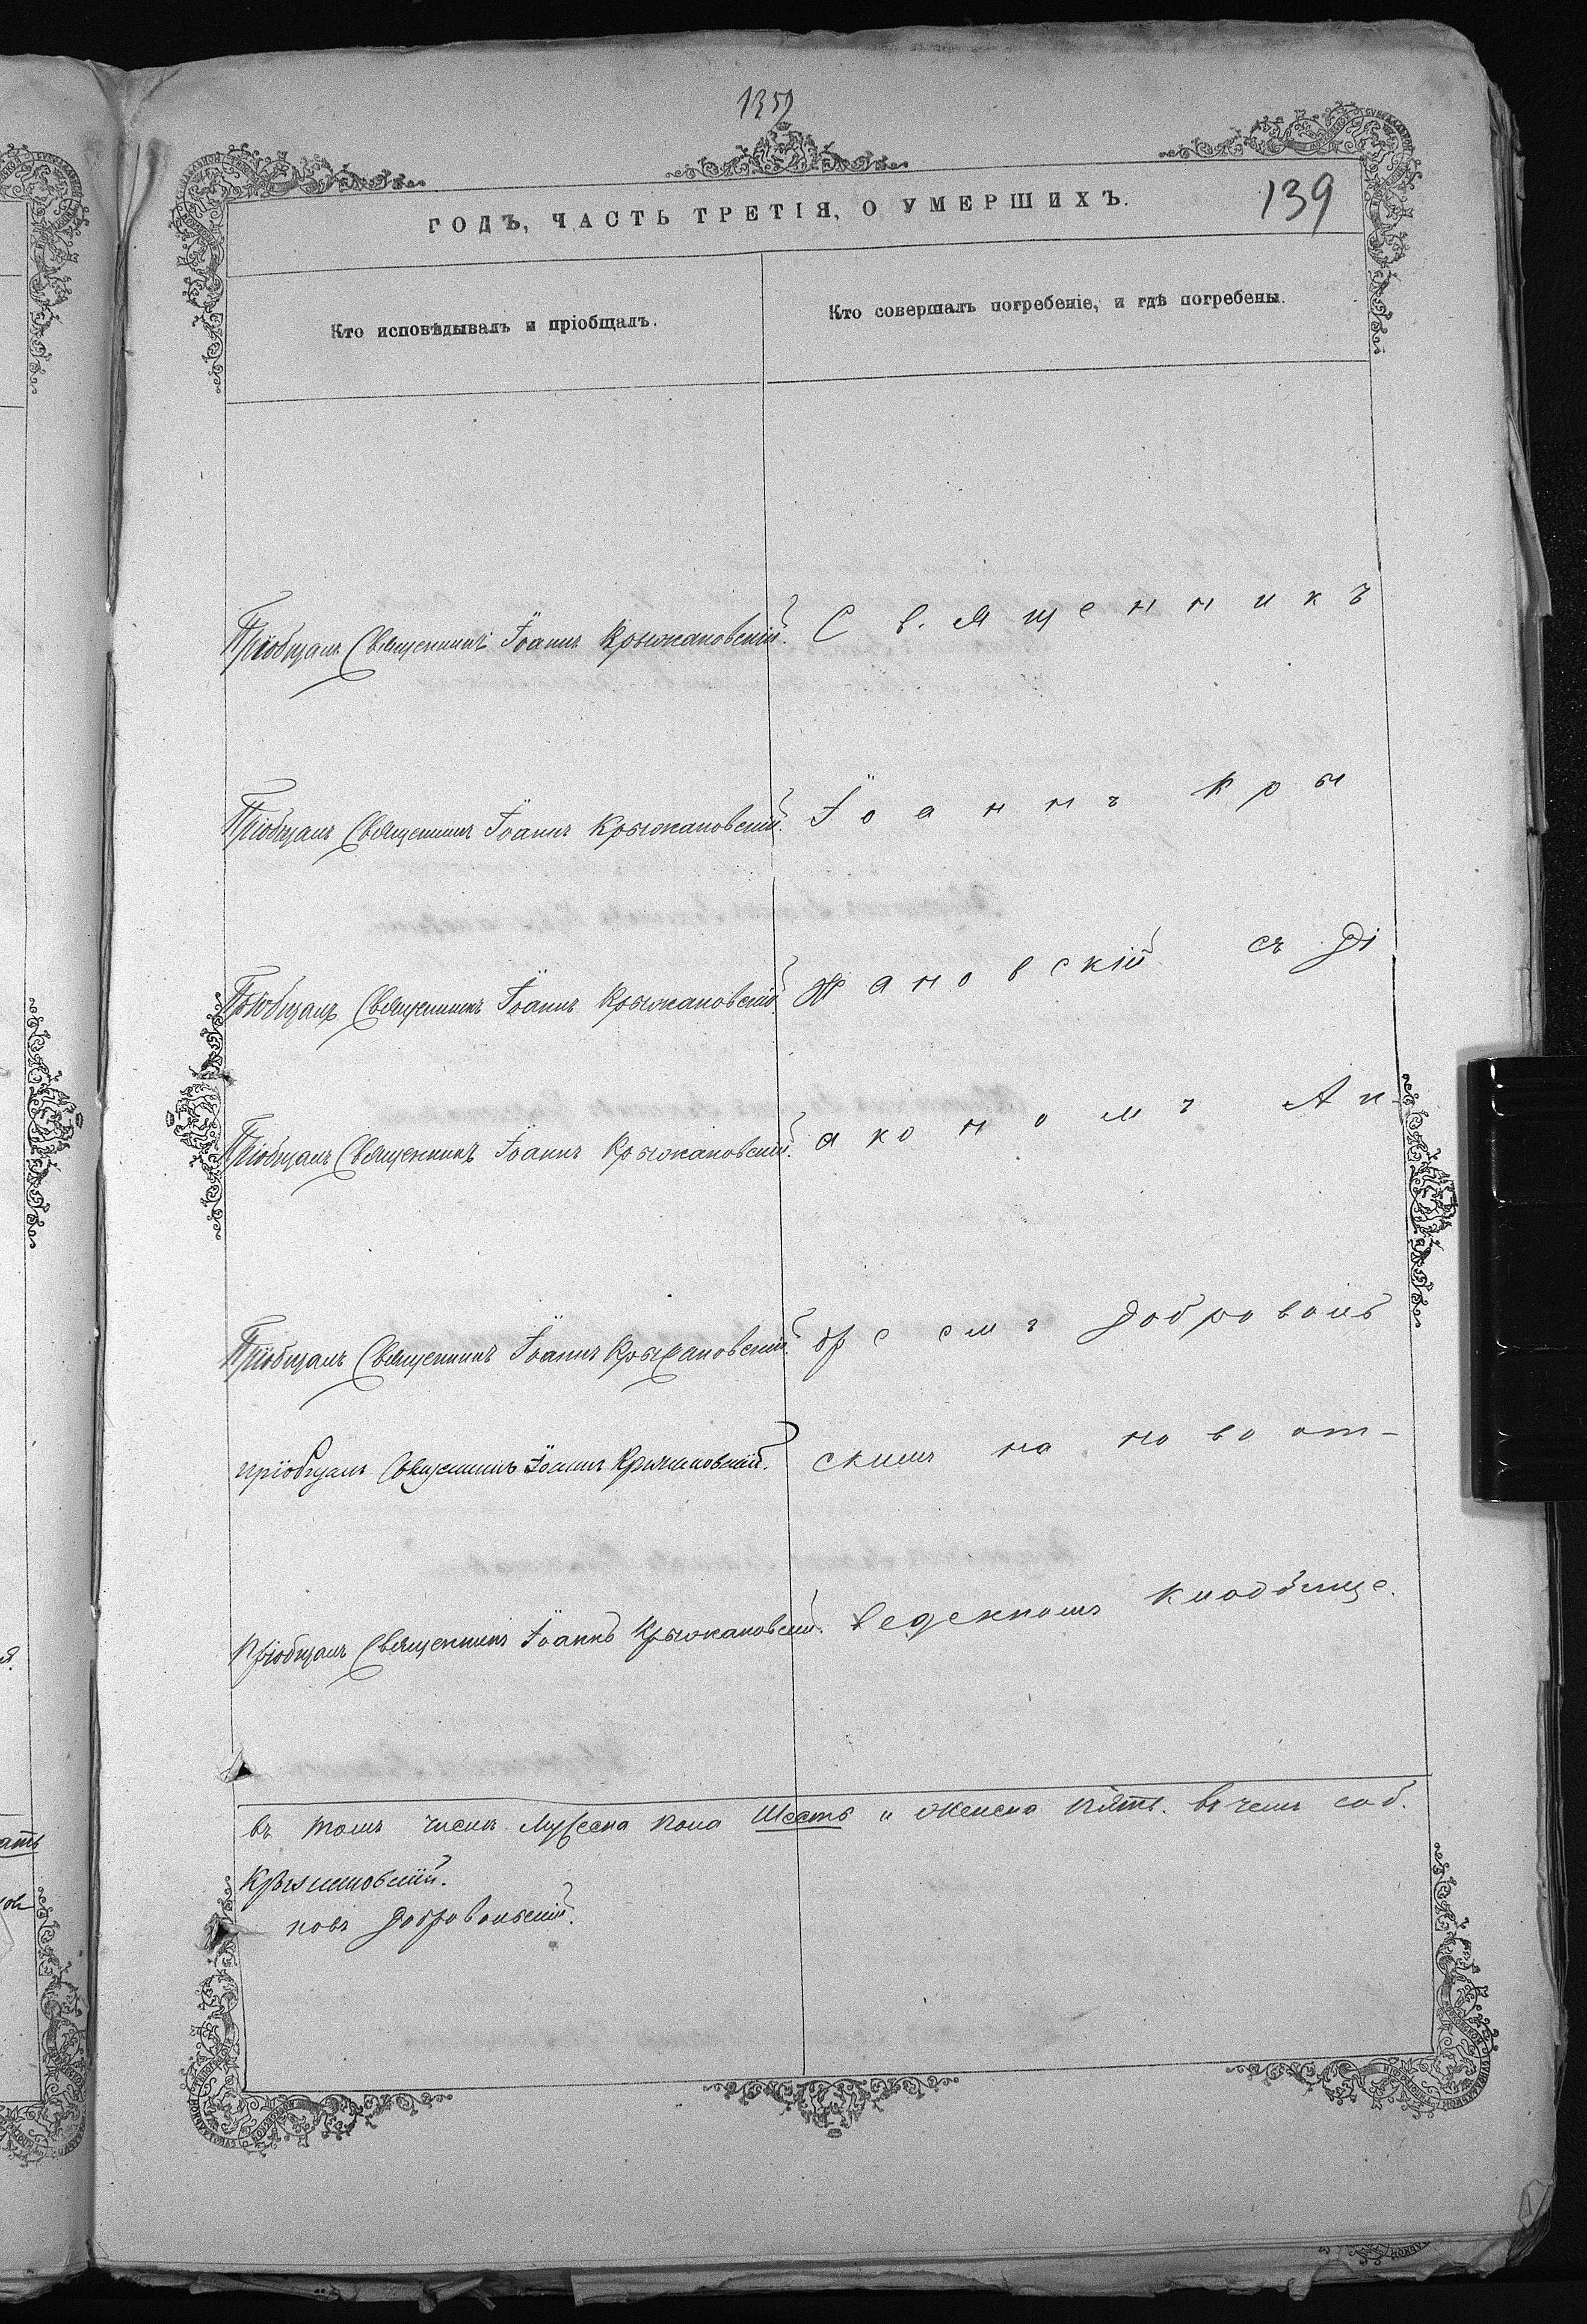 1359
139
ГОДЪ, ЧАСТЬ ТРЕТІЯ, О УМЕРШИХЪ.
Кто исповѣдывалъ и пріобщалъ.
Кто совершалъ погребеніе, и гдѣ погребены.
Пріобщалъ Священникъ Іоаннъ Крыжановскій.
Священникъ
Пріобщалъ Священникъ Іоаннъ Крыжановскій.
Іоаннъ Кры
Пріобщалъ Священникъ Іоаннъ Крыжановскій.
жановскій съ Ді
Пріобщалъ Священникъ Іоаннъ Крыжановскій.
акономъ Ан-
Пріобщалъ Священникъ Іоаннъ Крыжановскій.
Доброволь
пріобщалъ Священникъ Іоаннъ Крыжановскій.
скимъ на новоот-
Пріобщалъ Священникъ Іоаннъ Крыжановскій.
веденномъ кладбище.
въ томъ числѣ Мужеска пола Шесть и Женска пять. въ чемъ
Крыжановскій.
Добровольскій.